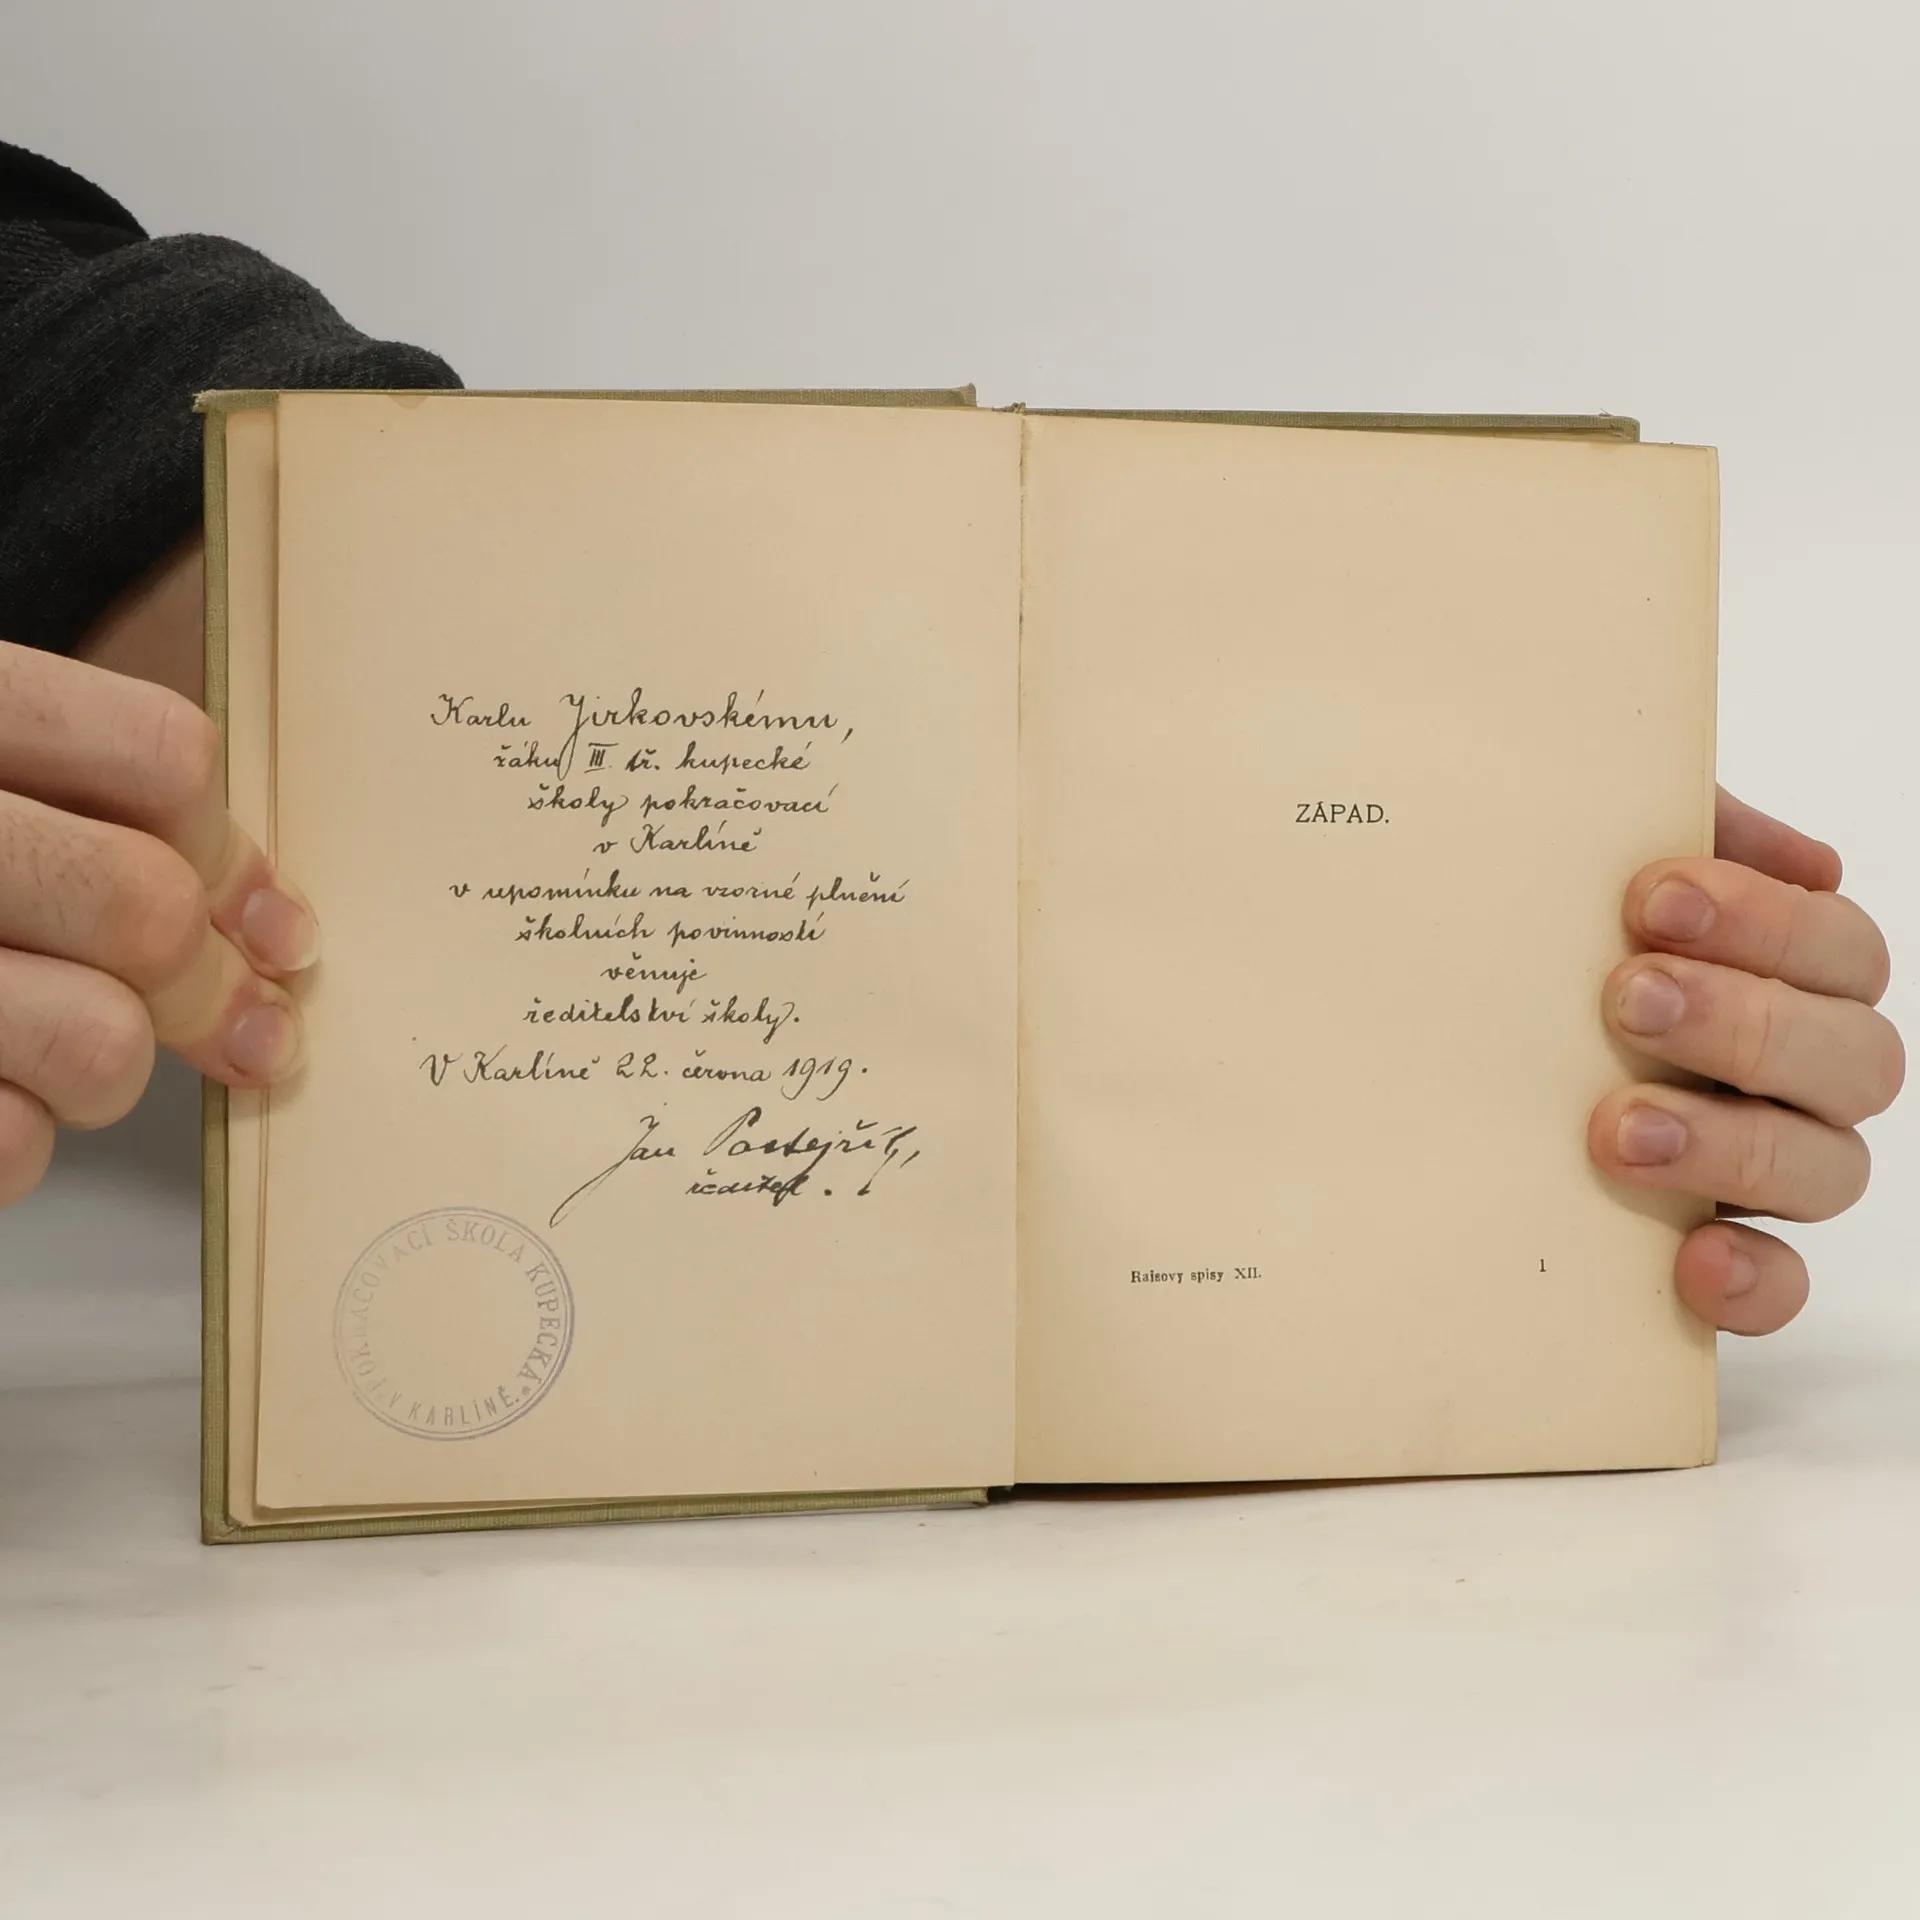 Karlu Jirkovskému,
žáku III. tř. kupecké
školy pokračovací
v Karlíně
v upomínku na vzorné plnění
školních povinností
věnuje
ředitelství školy.
V Karlíně 22. června 1919.
Jan
ředitel.
POKRAČOVACÍ ŠKOLA KUPECKÁ
V KARLÍNĚ.
ZÁPAD.
Raisovy spisy XII.
1